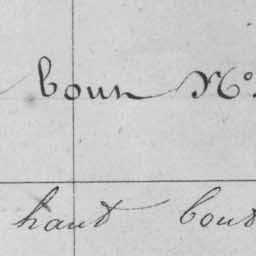 bour N°
haut bout